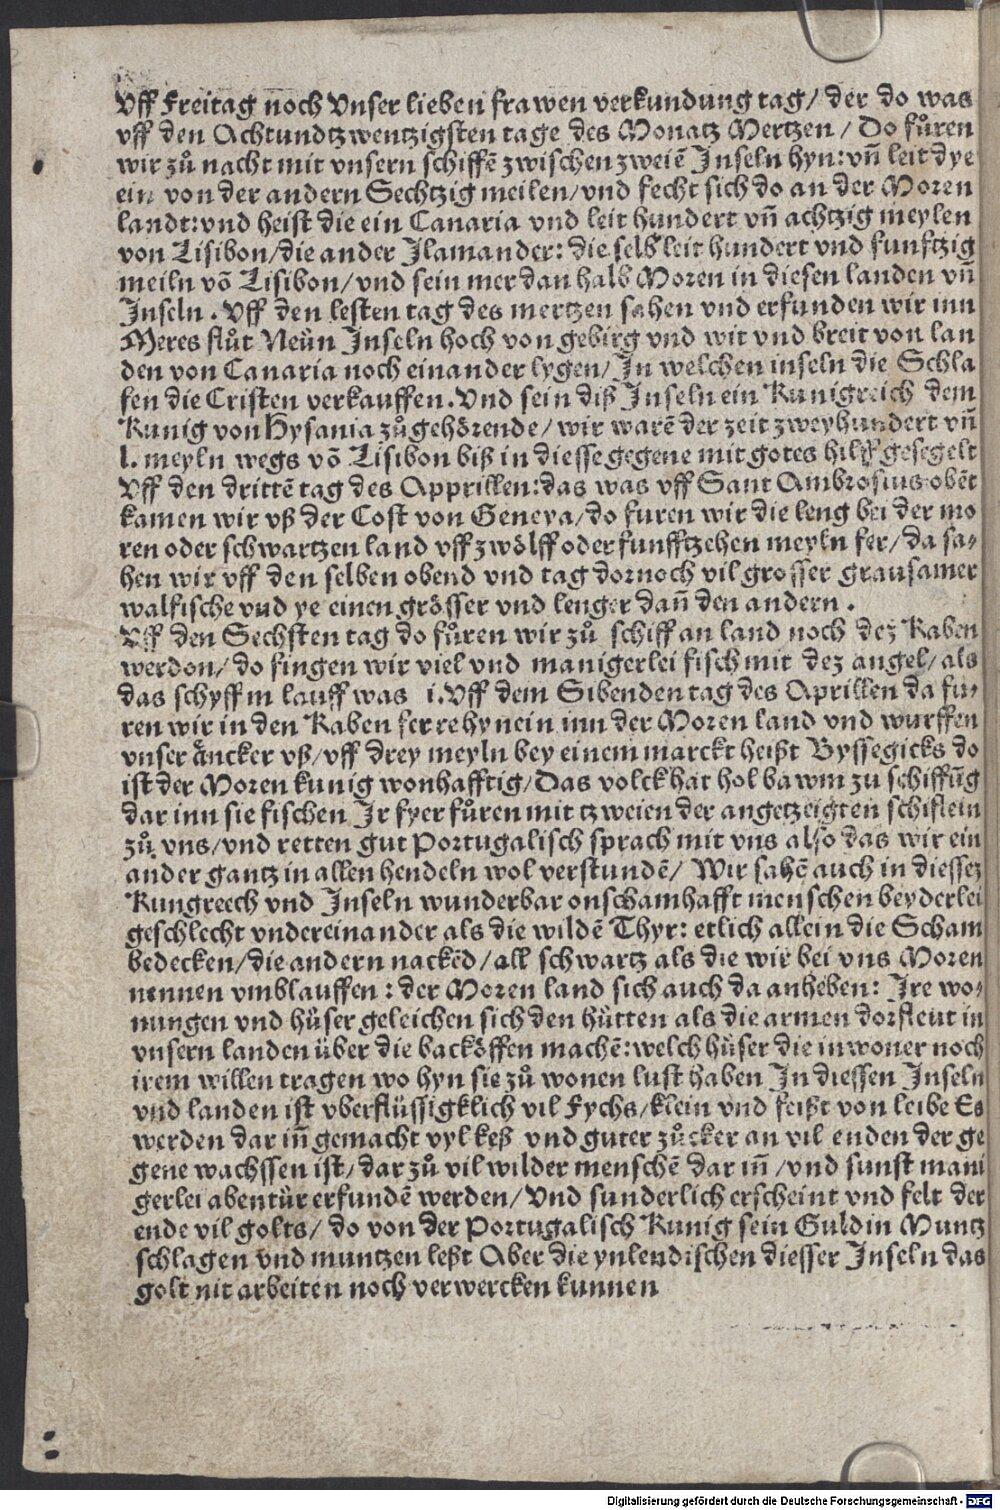 Vff Freitag noch Vnser lieben frawen verkundung tag/ der do was
vff den Achtundtzwentzigsten tage des Monatz Mertzen / Do fůren
wir zů nacht mit vnsern schiffē zwischen zweiē Inseln hyn: vn̄ leit dye
ein von der andern Sechtzig meilen/ vnd fecht sich do an der Moren
landt: vnd heist die ein Canaria vnd leit hundert vn̄ achtzig meylen
von Lisibon/ die ander Ilamander: die selb leit hundert vnd funftzig
meiln vō Lisibon/ vnd sein mer dan halb Moren in diesen landen vn̄
Inseln. Vff den lesten tag des mertzen sahen vnd erfunden wir inn
Meres flůt Neün Inseln hoch von gebirg vnd wit vnd breit von lan
den von Canaria noch einander lygen/ In welchen inseln die Schla
fen die Cristen verkauffen. Vnd sein diß Inseln ein Kunigreich dem
Kunig von Hysania zů gehörende/ wir warē der zeit zweyhundert vn̄
l. meyln wegs vō Lisibon biß in diesse gegene mit gotes hilff gesegelt
Vff den drittē tag des Apprillen: das was vff Sant Ambrosius obēt
kamen wir vß der Cost von Geneya/ do furen wir die leng bei der mo
ren oder schwartzen land vff zwölff oder funfftzehen meyln fer/ da sa⸗
hen wir vff den selben obend vnd tag dornoch vil grosser grausamer
walfische vnd ye einen grösser vnd lenger dan̄ den andern.
Vff den Sechsten tag do fůren wir zů schiff an land noch dez Kaben
werdon/ do fingen wir viel vnd manigerlei fisch mit dez angel/ als
das schyff in lauff was i. Vff dem Sibenden tag des Aprillen da fu⸗
ren wir in den Kaben ferre hynein inn der Moren land vnd wurffen
vnser äncker vß/ vff drey meyln bey einem marckt heißt Byssegicks do
ist der Moren kunig wonhafftig/ Das volck hat hol bawm zu schiffūg
dar inn sie fischen Ir fyer fůren mit tzweien der angetzeigten schiflein
zů vns/ vnd retten gut Portugalisch sprach mit vns also das wir ein
ander gantz in allen hendeln wol verstundē/ Wir sahē auch in diessez
Kungreech vnd Inseln wunderbar onschamhafft menschen beyderlei
geschlecht vndereinander als die wildē Thyr: etlich allein die Scham
bedecken/ die andern nackēd/ all schwartz als die wir bei vns Moren
nennen vmblauffen: der Moren land sich auch da anheben: Ire wo⸗
nungen vnd hüser geleichen sich den hütten als die armen dorfleut in
vnsern landen über die backöffen machē: welch hüser die inwoner noch
irem willen tragen wo hyn sie zů wonen lust haben In diessen Inseln
vnd landen ist vberflüssigklich vil Fychs/ klein vnd feißt von leibe Es
werden dar in̄ gemacht vyl keß vnd guter zůcker an vil enden der ge
gene wachssen ist/ dar zů vil wilder menschē dar in̄ / vnd sunst mani
gerlei abentür erfundē werden/ Vnd sunderlich erscheint vnd felt der
ende vil golts/ do von der Portugalisch Kunig sein Guldin Muntz
schlagen vnd muntzen leßt Aber die ynlendischen diesser Inseln das
golt nit arbeiten noch verwercken kunnen
Digitalisierung gefördert durch die Deutsche Forschungsgemeinschaft - DFG